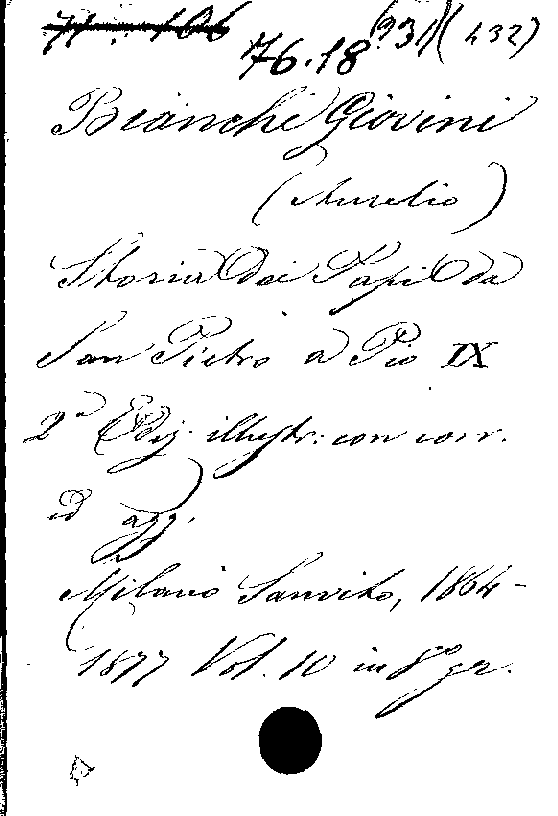 71. 106
76.18 (231)(432)
Bianchi Giovini
(Aurelio)
Storia dei Papi da
San Pietro a Pio IX
2a Ediz. illustr: con corr.
ed agg.
Milano Sanvito, 1864-
1877 Vol. 10 in 8° gr.